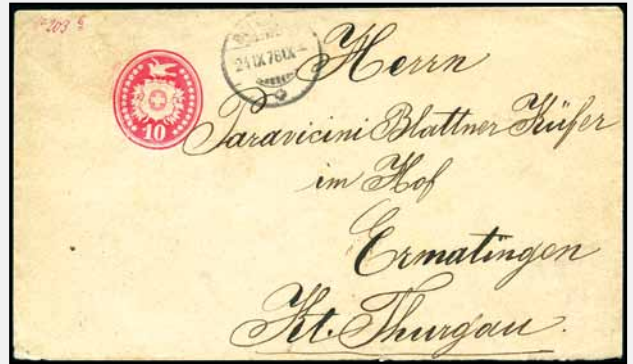 203
10
24 IX 76 IX
Herrn
Paravicini Blattner Küfer
im Hof
Ermatingen
Kt. Thurgau.